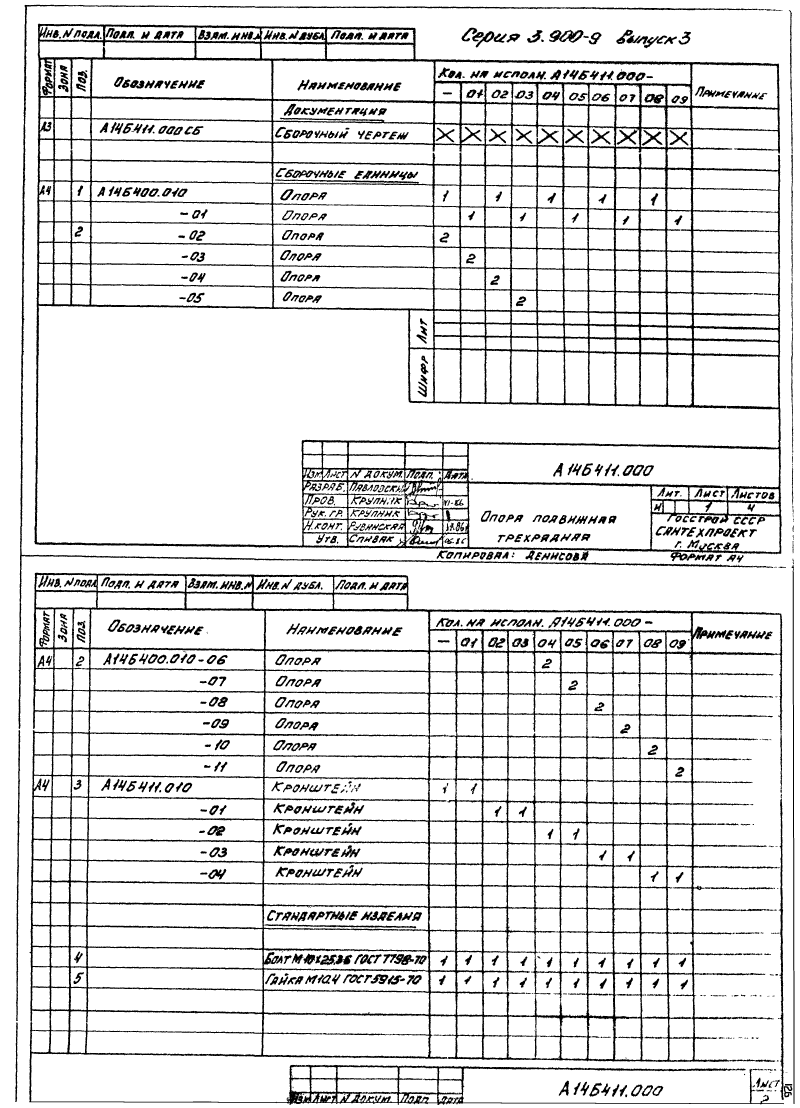 Серия 3.900-9 Выпуск 3
Инв. N подл. Подп. и дата Взам. инв. N Инв. N дубл. Подп. и дата
Формат Зона Поз. Обозначение Наименование Кол. на исполн. А14Б411.000- Примечание
- 01 02 03 04 05 06 07 08 09
Документация
А3 А14Б411.000СБ Сборочный чертеж X X X X X X X X X X
Сборочные единицы
А4 1 А14Б400.010 Опора 1 1 1 1 1
-01 Опора 1 1 1 1 1
2 -02 Опора 2
-03 Опора 2
-04 Опора 2
-05 Опора 2
Лит
Шифр
А14Б411.000
Изм Лист N докум. Подп. Дата
Разраб. Павловский
Пров. Крупник
Рук. гр. Крупник
Н.конт. Рувинская
Утв. Спивак
Опора подвижная
трехрядная
Лит. Лист Листов
И 1 4
Госстрой СССР
Сантехпроект
г. Москва
Копировал: Денисова Формат А4
Инв. N подл. Подп. и дата Взам. инв. N Инв. N дубл. Подп. и дата
Формат Зона Поз. Обозначение Наименование Кол. на исполн. А14Б411.000- Примечание
- 01 02 03 04 05 06 07 08 09
А4 2 А14Б400.010-06 Опора 2
-07 Опора 2
-08 Опора 2
-09 Опора 2
-10 Опора 2
-11 Опора 2
А4 3 А14Б411.010 Кронштейн 1 1
-01 Кронштейн 1 1
-02 Кронштейн 1 1
-03 Кронштейн 1 1
-04 Кронштейн 1 1
Стандартные изделия
4 Болт ГОСТ 7798-70 1 1 1 1 1 1 1 1 1 1
5 Гайка М10.4 ГОСТ 5915-70 1 1 1 1 1 1 1 1 1 1
Изм Лист N докум. Подп. Дата
А14Б411.000
Лист
2